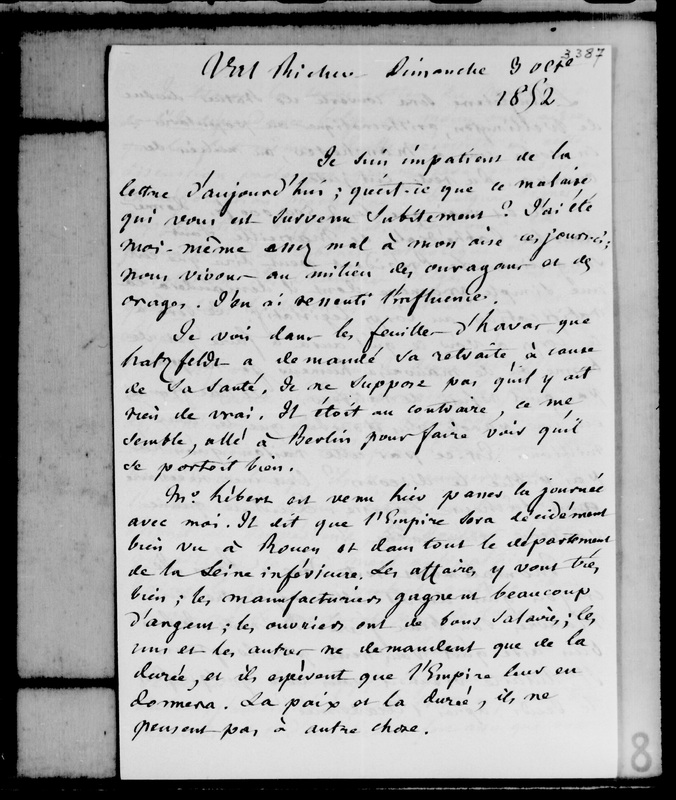 3387
Val Richer Dimanche 3 Octe
1852
Je suis impatient de la
lettre d'aujourd'hui ; qu'est-ce que ce malaise
qui vous est survenu subitement ? J'ai été
moi-même assez mal à mon aise ces jours-ci ;
nous vivons au milieu des ouragans et des
orages. J'en ai ressenti l'influence.
Je vois dans les feuilles d'havas que
hatzfeldt a demandé sa retraite à cause
de sa santé. Je ne suppose pas qu'il y ait
rien de vrai. Il étoit au contraire, ce me
semble, allé à Berlin pour faire voir qu'il
se portoit bien.
Mr. hébert est venu hier passer la journée
avec moi. Il dit que l'Empire sera décidément
bien vu à Rouen et dans tout le département
de la Seine inférieure. Les affaires y vont très
bien ; les manufacturiers gagnent beaucoup
d'argent ; les ouvriers ont de bons salaires ; les
uns et les autres ne demandent que de la
durée, et ils espèrent que l'Empire leur en
donnera. La paix et la durée, ils ne
pensent pas à autre chose.
8